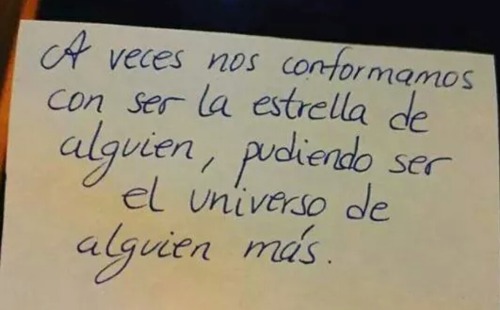 A veces nos conformamos
con ser la estrella de
alguien, pudiendo ser
el universo de
alguien más.